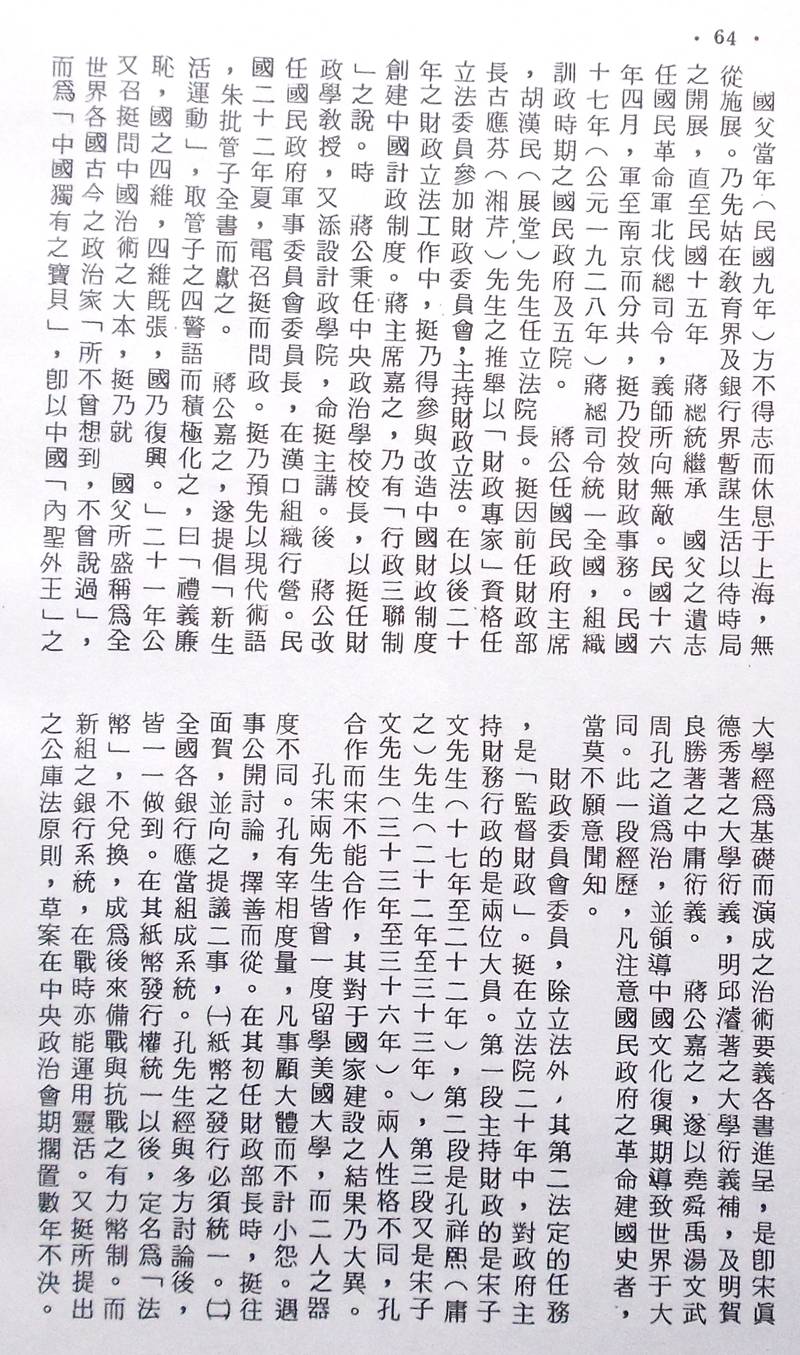 • 64 •
國父當年（民國九年）方不得志而休息于上海，無
從施展。乃先姑在教育界及銀行界暫謀生活以待時局
之開展，直至民國十五年　蔣總統繼承　國父之遺志
任國民革命軍北伐總司令，義師所向無敵。民國十六
年四月，軍至南京而分共，挺乃投效財政事務。民國
十七年（公元一九二八年）蔣總司令統一全國，組織
訓政時期之國民政府及五院。　蔣公任國民政府主席
，胡漢民（展堂）先生任立法院長。挺因前任財政部
長古應芬（湘芹）先生之推舉以「財政專家」資格任
立法委員參加財政委員會，主持財政立法。在以後二十
年之財政立法工作中，挺乃得參與改造中國財政制度
創建中國計政制度。蔣主席嘉之，乃有「行政三聯制
」之說。時　蔣公秉任中央政治學校校長，以挺任財
政學教授，又添設計政學院，命挺主講。後　蔣公改
任國民政府軍事委員會委員長，在漢口組織行營。民
國二十二年夏，電召挺而問政。挺乃預先以現代術語
，朱批管子全書而獻之。　蔣公嘉之，遂提倡「新生
活運動」，取管子之四警語而積極化之，曰「禮義廉
恥，國之四維，四維旣張，國乃復興。」二十一年公
又召挺問中國治術之大本，挺乃就　國父所盛稱爲全
世界各國古今之政治家「所不曾想到，不曾說過」，
而爲「中國獨有之寶貝」，卽以中國「內聖外王」之
大學經爲基礎而演成之治術要義各書進呈，是卽宋眞
德秀著之大學衍義，明邱濬著之大學衍義補，及明賀
良勝著之中庸衍義。　蔣公嘉之，遂以堯舜禹湯文武
周孔之道爲治，並領導中國文化復興期導致世界于大
同。此一段經歷，凡注意國民政府之革命建國史者，
當莫不願意聞知。
財政委員會委員，除立法外，其第二法定的任務
，是「監督財政」。挺在立法院二十年中，對政府主
持財務行政的是兩位大員。第一段主持財政的是宋子
文先生（十七年至二十二年），第二段是孔祥熙（庸
之）先生（二十二年至三十三年），第三段又是宋子
文先生（三十三年至三十六年）。兩人性格不同，孔
合作而宋不能合作，其對于國家建設之結果乃大異。
孔宋兩先生皆曾一度留學美國大學，而二人之器
度不同。孔有宰相度量，凡事顧大體而不計小怨。遇
事公開討論，擇善而從。在其初任財政部長時，挺往
面賀，並向之提議二事，㈠紙幣之發行必須統一。㈡
全國各銀行應當組成系統。孔先生經與多方討論後，
皆一一做到。在其紙幣發行權統一以後，定名爲「法
幣」，不兌換，成爲後來備戰與抗戰之有力幣制。而
新組之銀行系統，在戰時亦能運用靈活。又挺所提出
之公庫法原則，草案在中央政治會期擱置數年不決。